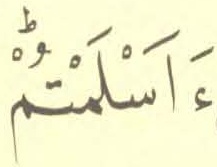 ءَاَسْلَمْتُمْؕ